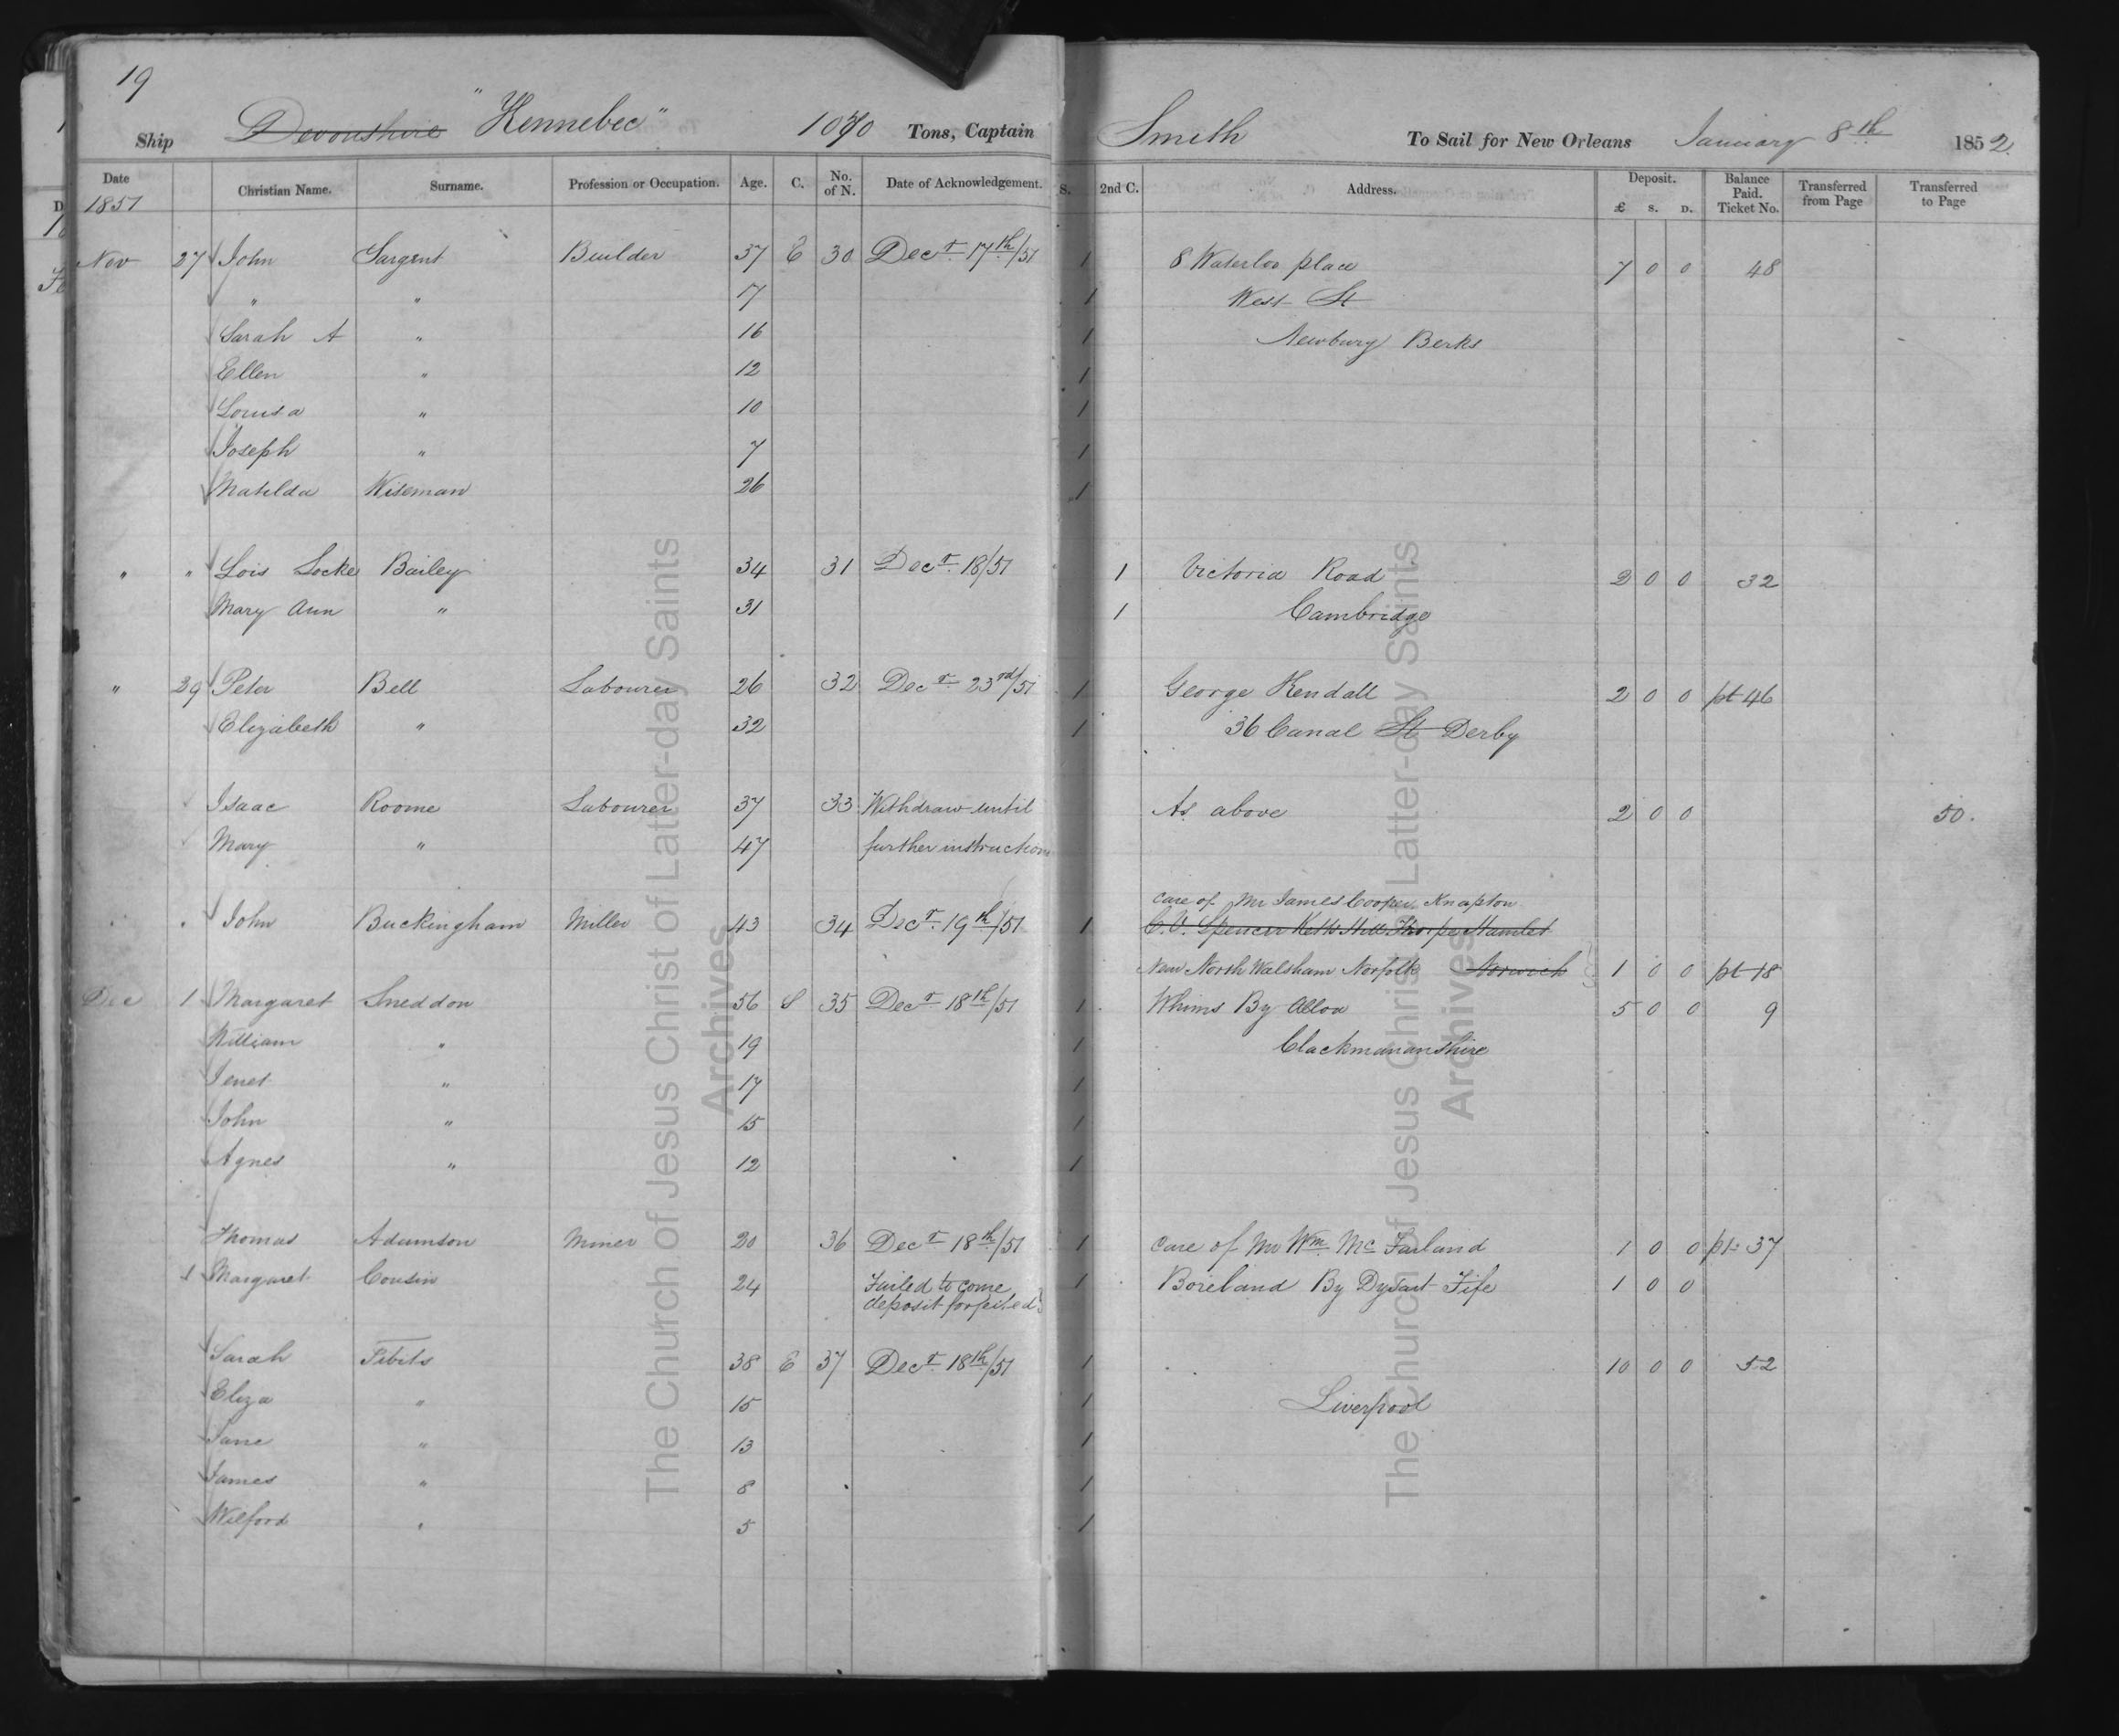 19
Ship Devonshire "Kennebec" 1070 Tons, Captain Smith To Sail for New Orleans January 8th 1852.
Date Christian Name. Surname. Profession or Occupation. Age. C. No. of N. Date of Acknowledgement. S. 2nd C. Address. Deposit. £ S. D. Balance Paid. Ticket No. Transferred from Page Transferred to Page
1851
Nov 27 John Sargent Builder 37 E 30 Decr 17th/51 1 8 Waterloo place 7 0 0 48
" " 17 1 West St
Sarah A " 16 1 Newbury Berks
Ellen " 12 1
Louisa " 10 1
Joseph " 7 1
Matilda Wiseman 26 1
" " Lois Locke Bailey 34 31 Decr 18/51 1 Victoria Road 2 0 0 32
Mary Ann " 31 1 Cambridge
" 29 Peter Bell Labourer 26 32 Decr 23rd/51 1 George Kendall 2 0 0 pt 46
Elizabeth " 32 1 36 Canal St Derby
Isaac Roome Labourer 37 33 Withdraw until As above 2 0 0 50.
Mary " 47 further instructions
care of Mr James Cooper Knapton
" " John Buckingham Miller 43 34 Decr 19th/51 1 C. V. Spencer Ketts Hill Thorpe Hamlet
Near North Walsham Norfolk Norwich 1 0 0 pt 18
Dec 1 Margaret Sneddon 56 S 35 Decr 18th/51 1 Whims By Alloa 5 0 0 9
William " 19 1 Clackmananshire
Jenet " 17 1
John " 15 1
Agnes " 12 1
Thomas Adamson Miner 20 36 Decr 18th/51 1 Care of Mr Wm Mc Farland 1 0 0 pt 37
1 Margaret Cousin 24 Failed to come 1 Boreland By Dysart Fife 1 0 0
deposit forfeited
Sarah Tibits 38 E 37 Decr 18th/51 1 10 0 0 52
Eliza " 15 1 Liverpool
Jane " 13 1
James " 8 1
Wilford " 5 1
The Church of Jesus Christ of Latter-day Saints
Archives
The Church of Jesus Christ of Latter-day Saints
Archives